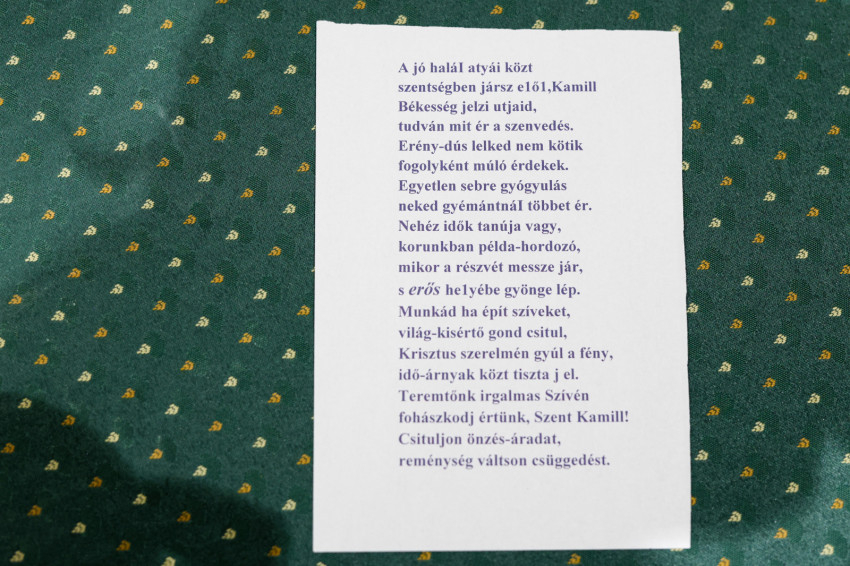 A jó haláI atyái közt
szentségben jársz e1ő1,Kamill
Békesség jelzi utjaid,
tudván mit ér a szenvedés.
Erény-dús lelked nem kötik
fogolyként múló érdekek.
Egyetlen sebre gyógyulás
neked gyémántnáI többet ér.
Nehéz idők tanúja vagy,
korunkban példa-hordozó,
mikor a részvét messze jár,
s erős he1yébe gyönge lép.
Munkád ha épít szíveket,
világ-kisértő gond csitul,
Krisztus szerelmén gyúl a fény,
idő-árnyak közt tiszta j el.
Teremtőnk irgalmas Szívén
fohászkodj értünk, Szent Kamill!
Csituljon önzés-áradat,
reménység váltson csüggedést.